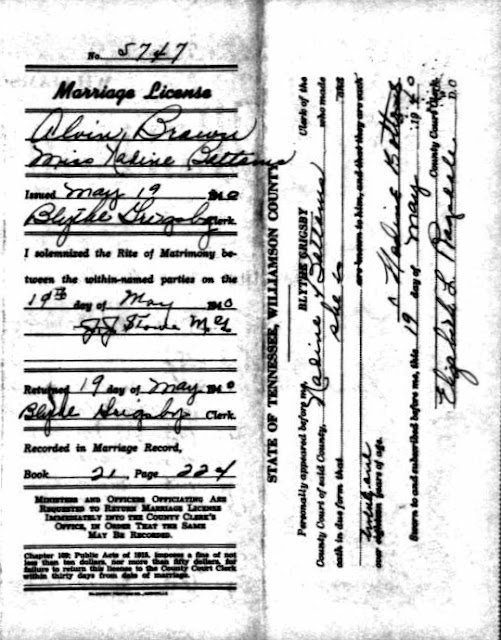 No. 5747
Marriage License
Alvin Brown
Miss Nadine Bottoms
Issued May 19 1940
Blythe Grigsby Clerk.
I solemnized the Rite of Matrimony be-
tween the within-named parties on the
19th day of May 1940
Returned 19 day of May 1940
Blythe Grigsby Clerk.
Recorded in Marriage Record,
Book 21 Page 224
MINISTERS AND OFFICERS OFFICIATING ARE
REQUESTED TO RETURN MARRIAGE LICENSE
IMMEDIATELY INTO THE COUNTY CLERK'S
OFFICE, IN ORDER THAT THE SAME
MAY BE RECORDED.
Chapter 109: Public Acts of 1915, imposes a fine of not
less than ten dollars, nor more than fifty dollars, for
failure to return this license to the County Court Clerk
within thirty days from date of marriage.
STATE OF TENNESSEE, WILLIAMSON COUNTY
Personally appeared before me, BLYTHE GRIGSBY Clerk of the
County Court of said County, Nadine Bottoms who made
oath in due form that she is and
are known to him, and that they are each
over eighteen years of age.
Nadine Bottoms
Sworn to and subscribed before me, this 19 day of May 1940
Elizabeth L. Ragsdale County Court Clerk
D.C